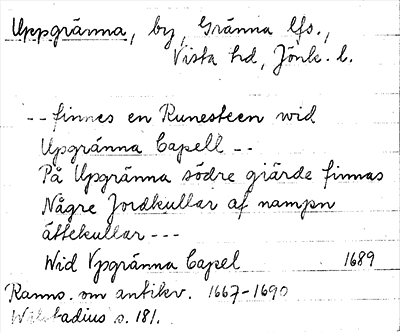 Uppgränna, by, Gränna lfs.,
Vista hd, Jönk. l.
-- finnes en Runesteen wid
Upgränna Capell --
På Upgränna södre giärde finnas
Någre Jordkullar af nampn
ättekullar ---
Wid Vpgränna Capel 1689
Ranns. om antikv. 1667-1690
s. 181.